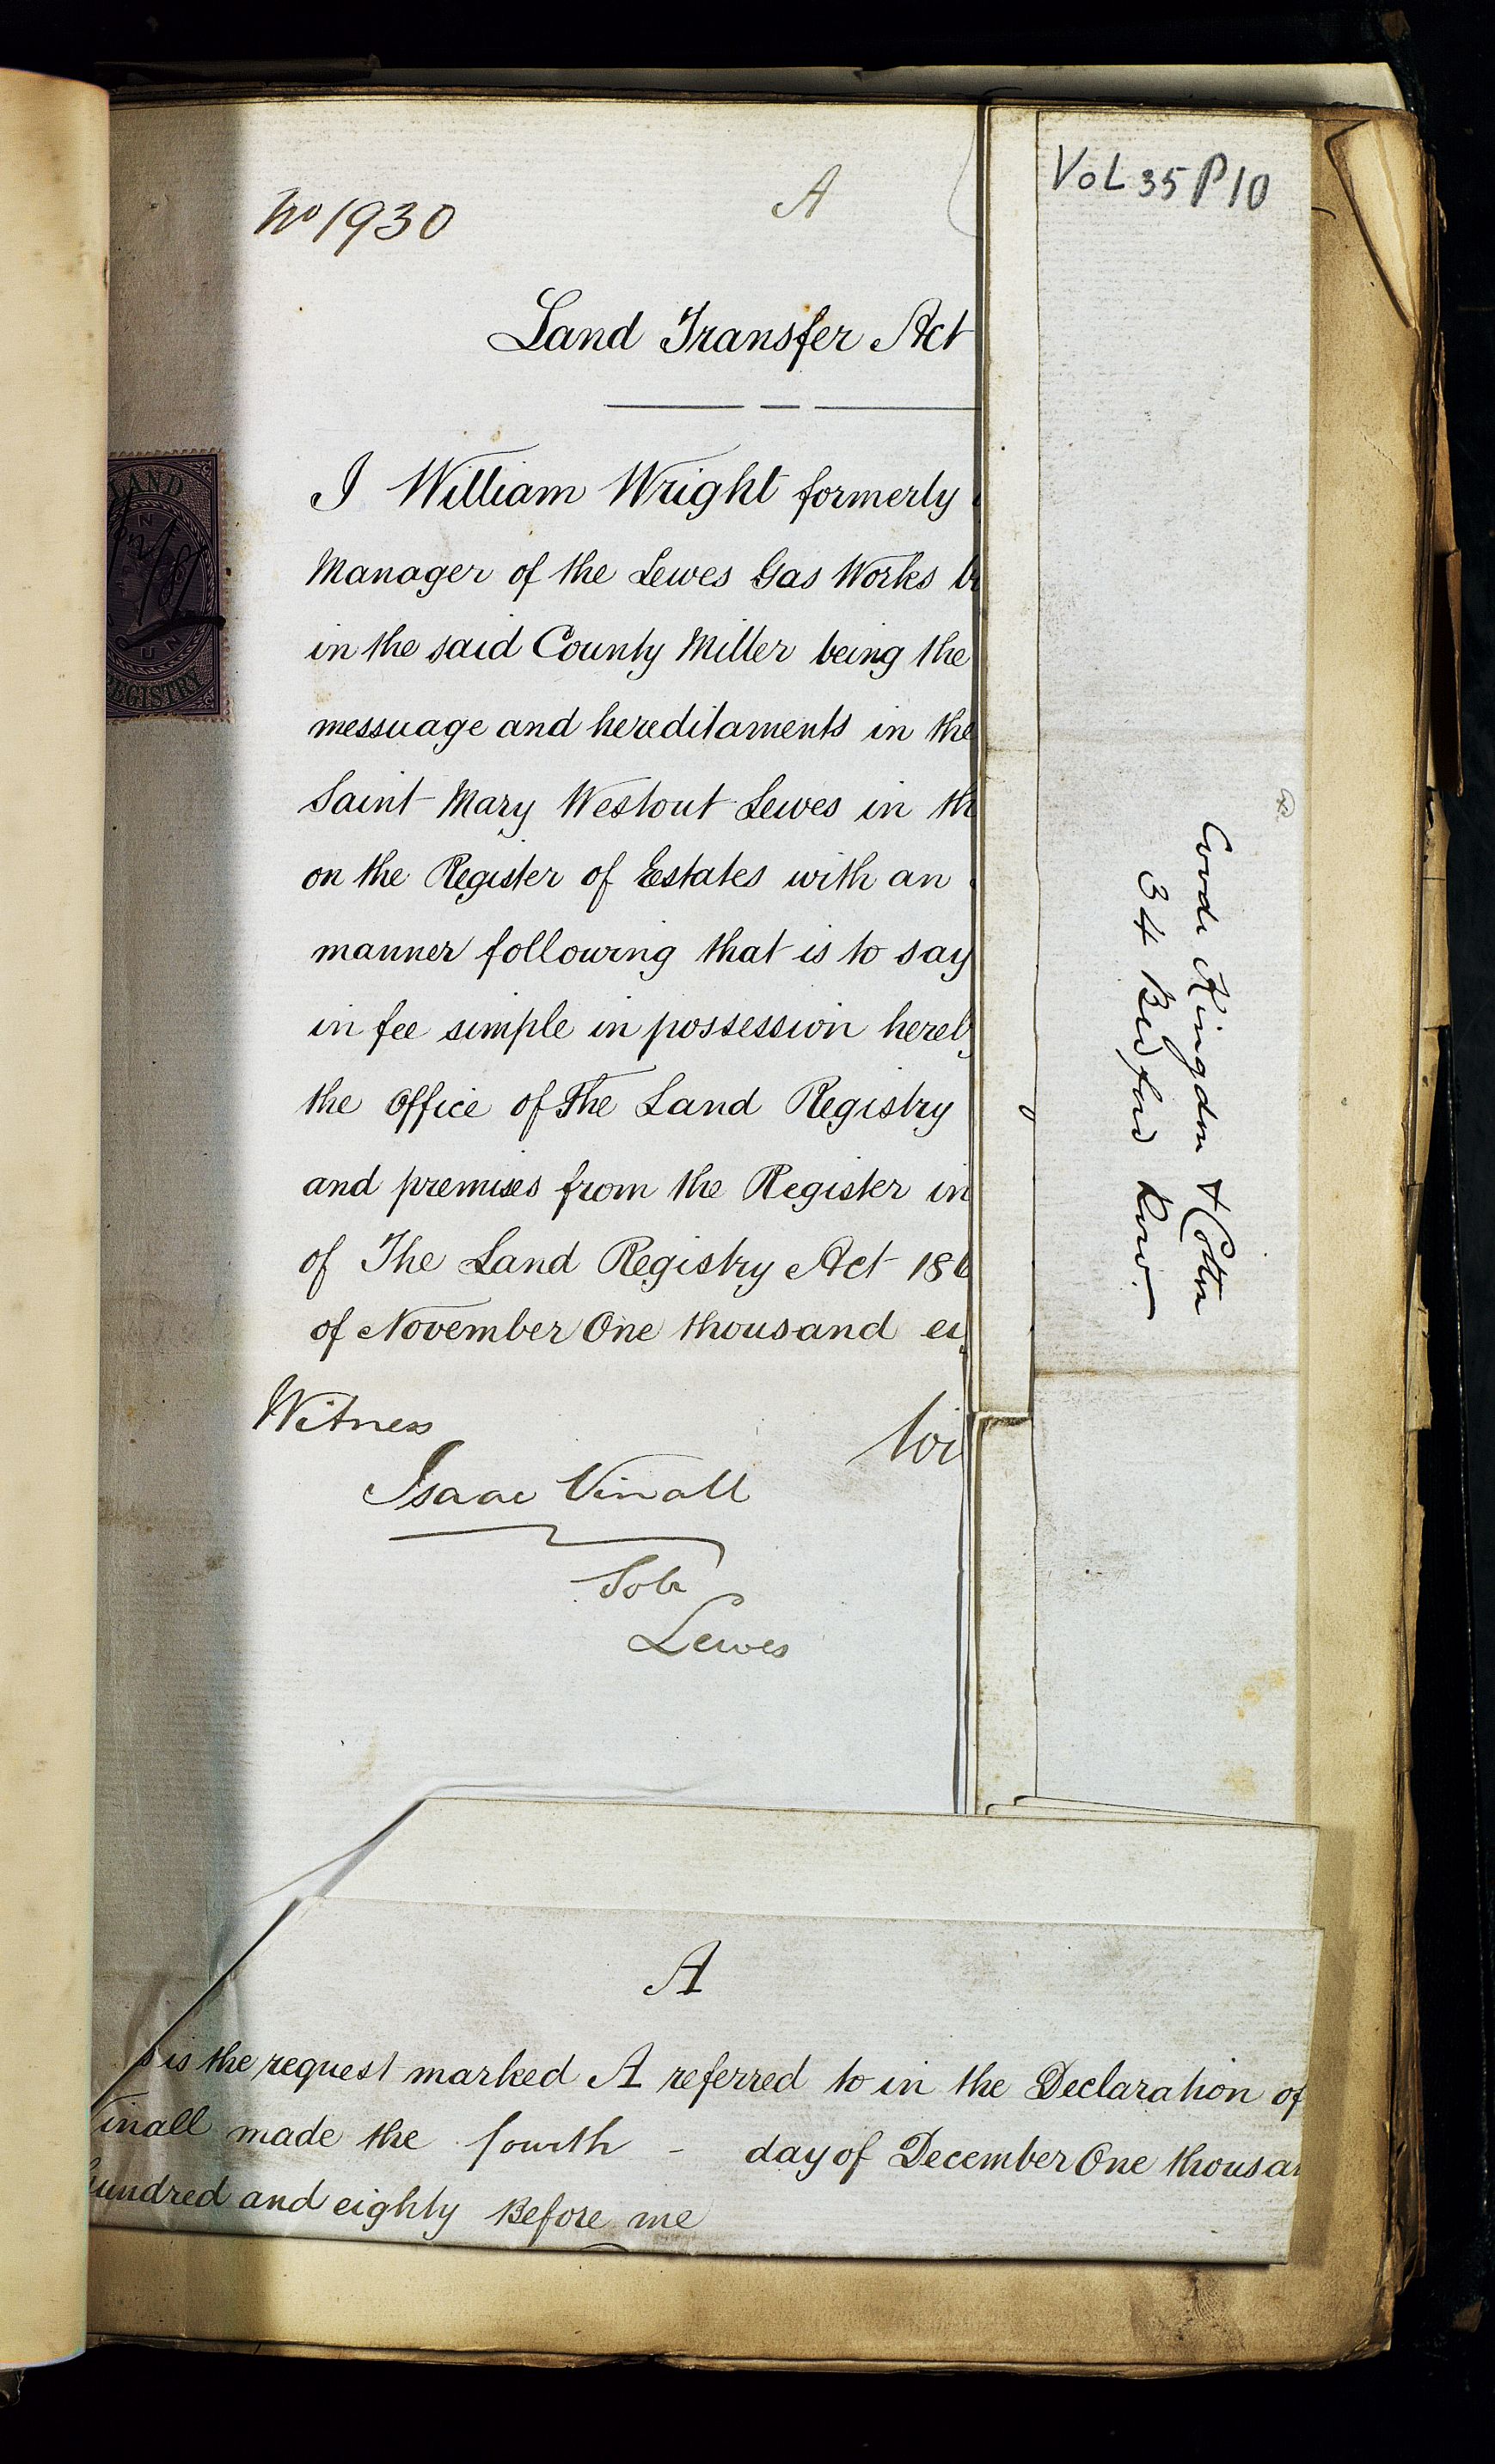 No 1930
A
Land Transfer Act
I William Wright formerly
Manager of the Lewes Gas Works
in the said County Miller being the
messuage and hereditaments in the
Saint Mary Westout Lewes in th
on the Register of Estates with an
manner following that is to say
in fee simple in possession hereb
the Office of The Land Registry
and premises from the Register in
of The Land Registry Act 186
of November One thousand ei
Witness
Wi
Isaac Vinall
Solr
Lewes
LAND
REGISTRY
VoL 35 P10
Coode Kingdon & Cotton
34 Bedford Row
A
s is the request marked A referred to in the Declaration of
Vinall made the fourth - day of December One thousan
hundred and eighty Before me